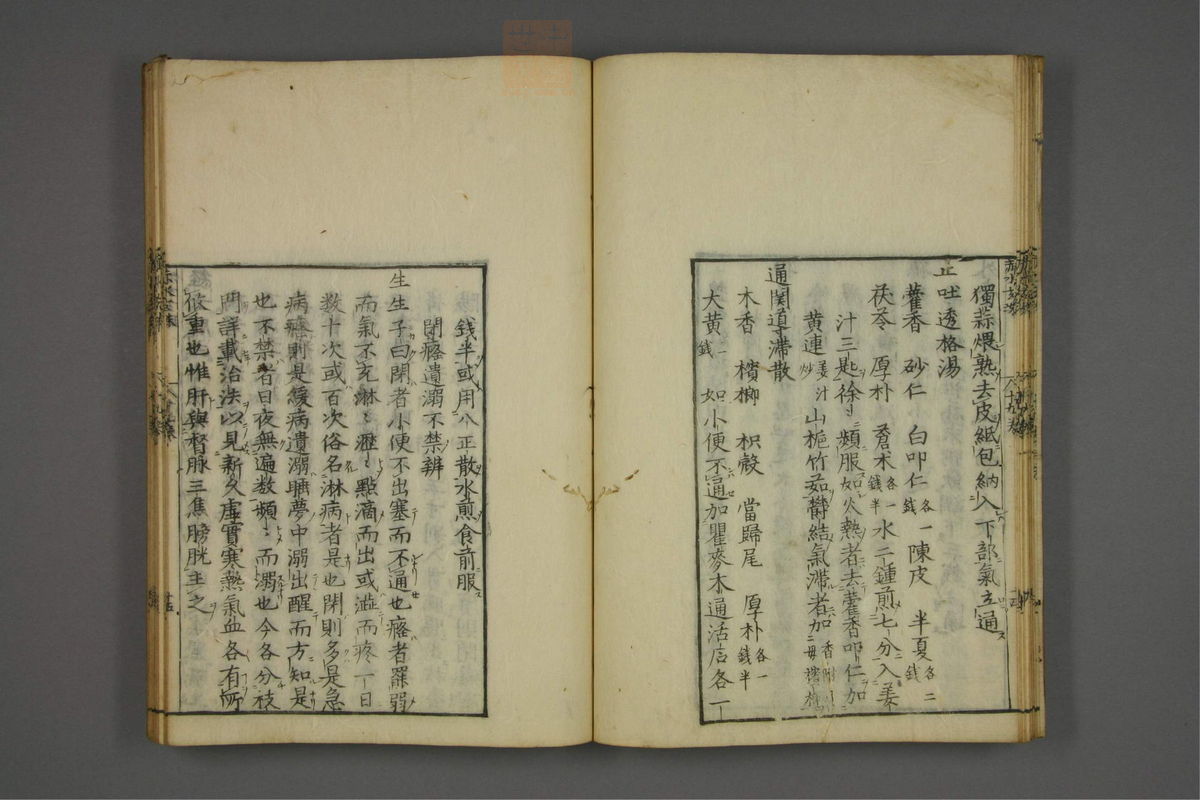 獨蒜煨熟去皮紙包納入下部氣立通
止吐透格湯
藿香 砂仁 白叩仁各一錢 陳皮 半夏各二錢
茯苓 厚朴 蒼朮各一錢半 水二鍾煎七分入姜
汁三匙徐〻頻服如火熱者去藿香叩仁加
黄連姜汁炒 山梔竹茹鬱結氣滯者加香附
通関導滯散
木香 檳榔 枳殼 當歸尾 厚朴各一錢半
大黄一錢 如小便不通加瞿麥木通活石各一
錢半或用八正散水煎食前服
閉癃遺溺不禁辨
生生子曰閉者小便不出塞而不通也癃者罷弱
而氣不充淋〻瀝〻點滴而出或澁而疼一日
数十次或百次俗名淋病者是也閉則多是急
病癃則是緩病遺溺睡夢中溺出醒而方知是
也不禁者日夜無遍数頻〻而溺也今各分枝
門詳載治法以見新久虚實寒熱氣血各有所
攸重也惟肝與督脉三焦膀胱主之